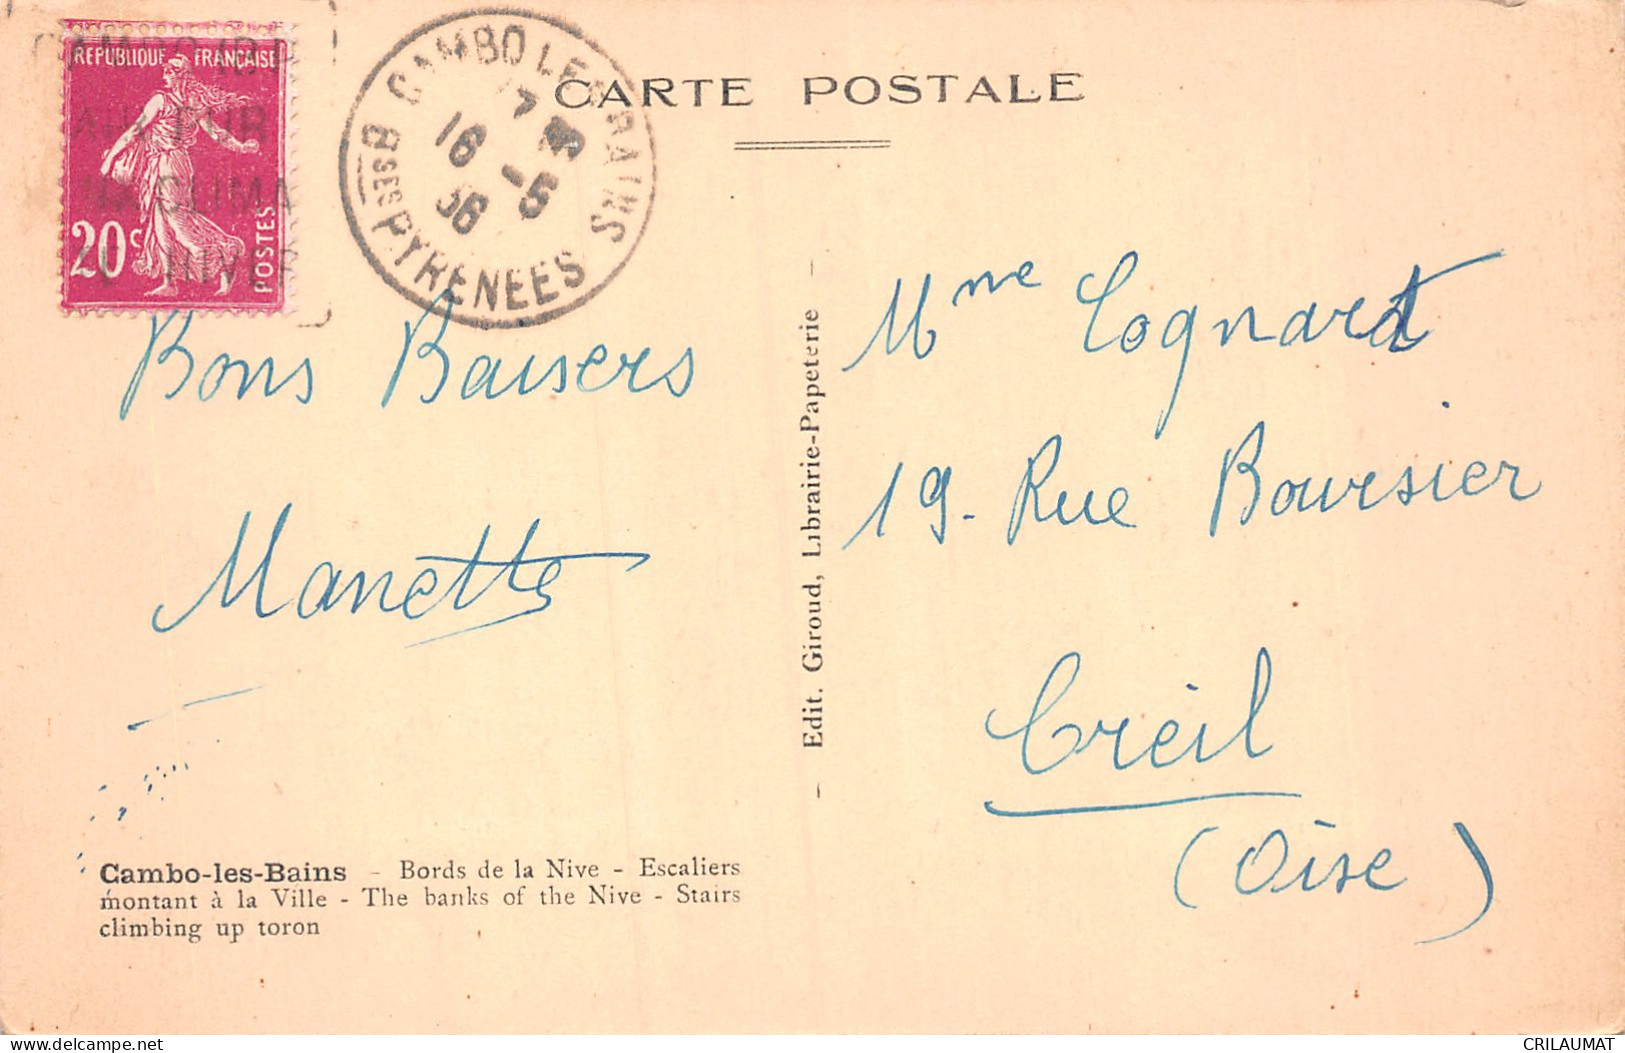 RÉPUBLIQUE FRANÇAISE
20c
POSTES
CAMBO LES BAINS
16 -5
36
Bses PYRENEES
CARTE POSTALE
Bons Baisers
Manette
Cambo-les-Bains - Bords de la Nive - Escaliers
montant à la Ville - The banks of the Nive - Stairs
climbing up toron
- Edit. Giroud, Librairie-Papeterie -
Mme Cognard
19. Rue Boursier
Creil
(Oise)
www.delcampe.net
CRILAUMAT